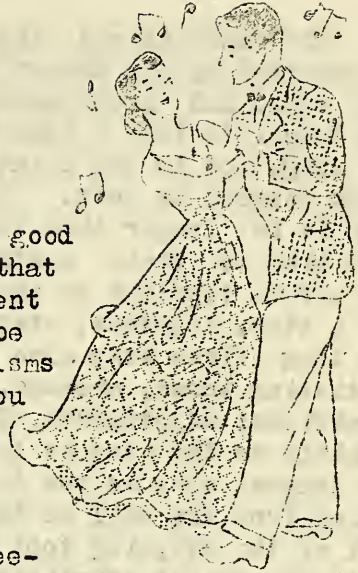 good
that
ent
be
isms
ou
ee-